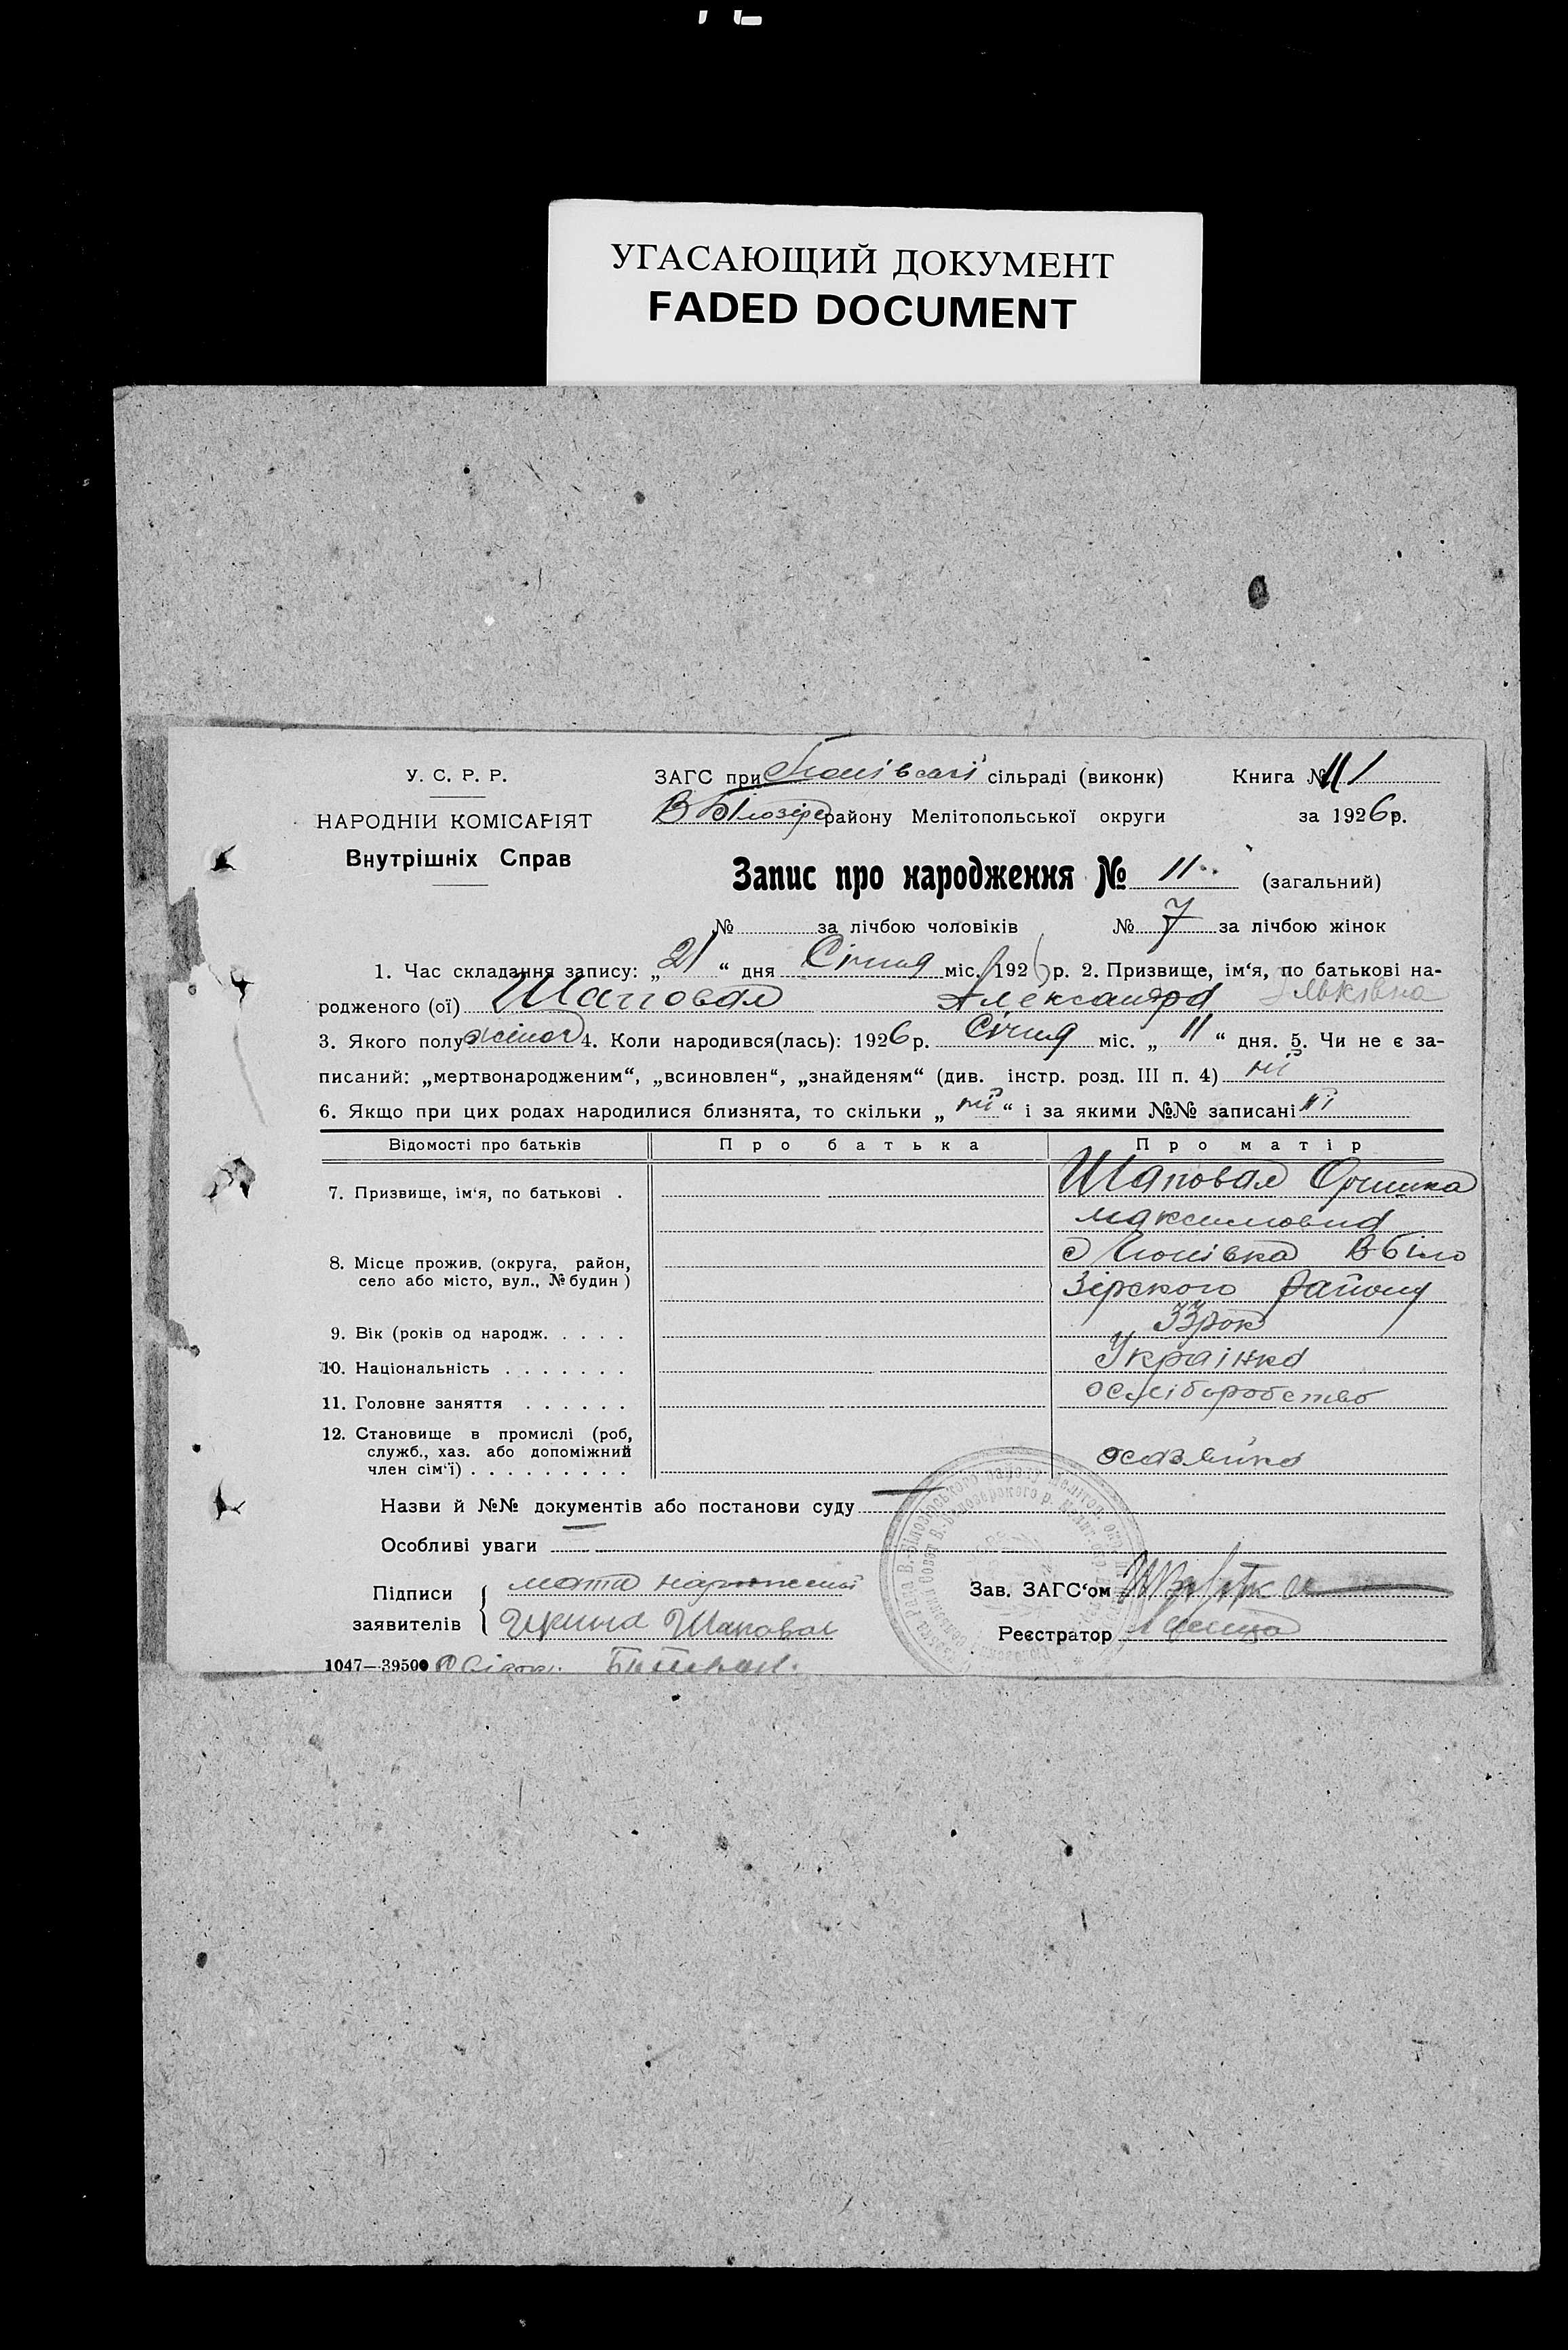 УГАСАЮЩИЙ ДОКУМЕНТ
FADED DOCUMENT
У. С. Р. Р.
НАРОДНІЙ КОМІСАРІЯТ
Внутрішніх Справ
ЗАГС при сільраді (виконк) Книга № 1
В Білозірс району Мелітопольської округи за 1926 р.
Запис про народження № 11 (загальний)
№ за лічбою чоловіків № 7 за лічбою жінок
1. Час складання запису: „21“ дня Січня міс. 1926 р. 2. Призвище, ім‘я, по батькові на-
родженого (ої) Шаповал Александра
3. Якого полу жіноч 4. Коли народився(лась): 1926 р. Січня міс. „11“ дня. 5. Чи не є за-
писаний: „мертвонародженим“, „всиновлен“, „знайденям“ (див. інстр. розд. III п. 4) ні
6. Якщо при цих родах народилися близнята, то скільки „ні“ і за якими №№ записані ні
Відомості про батьків Про батька Про матір
7. Призвище, ім‘я, по батькові . Шаповал Оришка
Максимовна
8. Місце прожив. (округа, район, В Біло
село або місто, вул., № будин) зірского району
9. Вік (років од народж. . . . . 33 рок
10. Національність . . . . . . . Українка
11. Головне заняття . . . . . .
12. Становище в промислі (роб,
служб., хаз. або допоміжний
член сім‘ї) . . . . . . . . .
Назви й №№ документів або постанови суду —
Особливі уваги —
Підписи
заявителів
мати
Ирина Шаповал
Зав. ЗАГС‘ом
Реєстратор
1047—39500